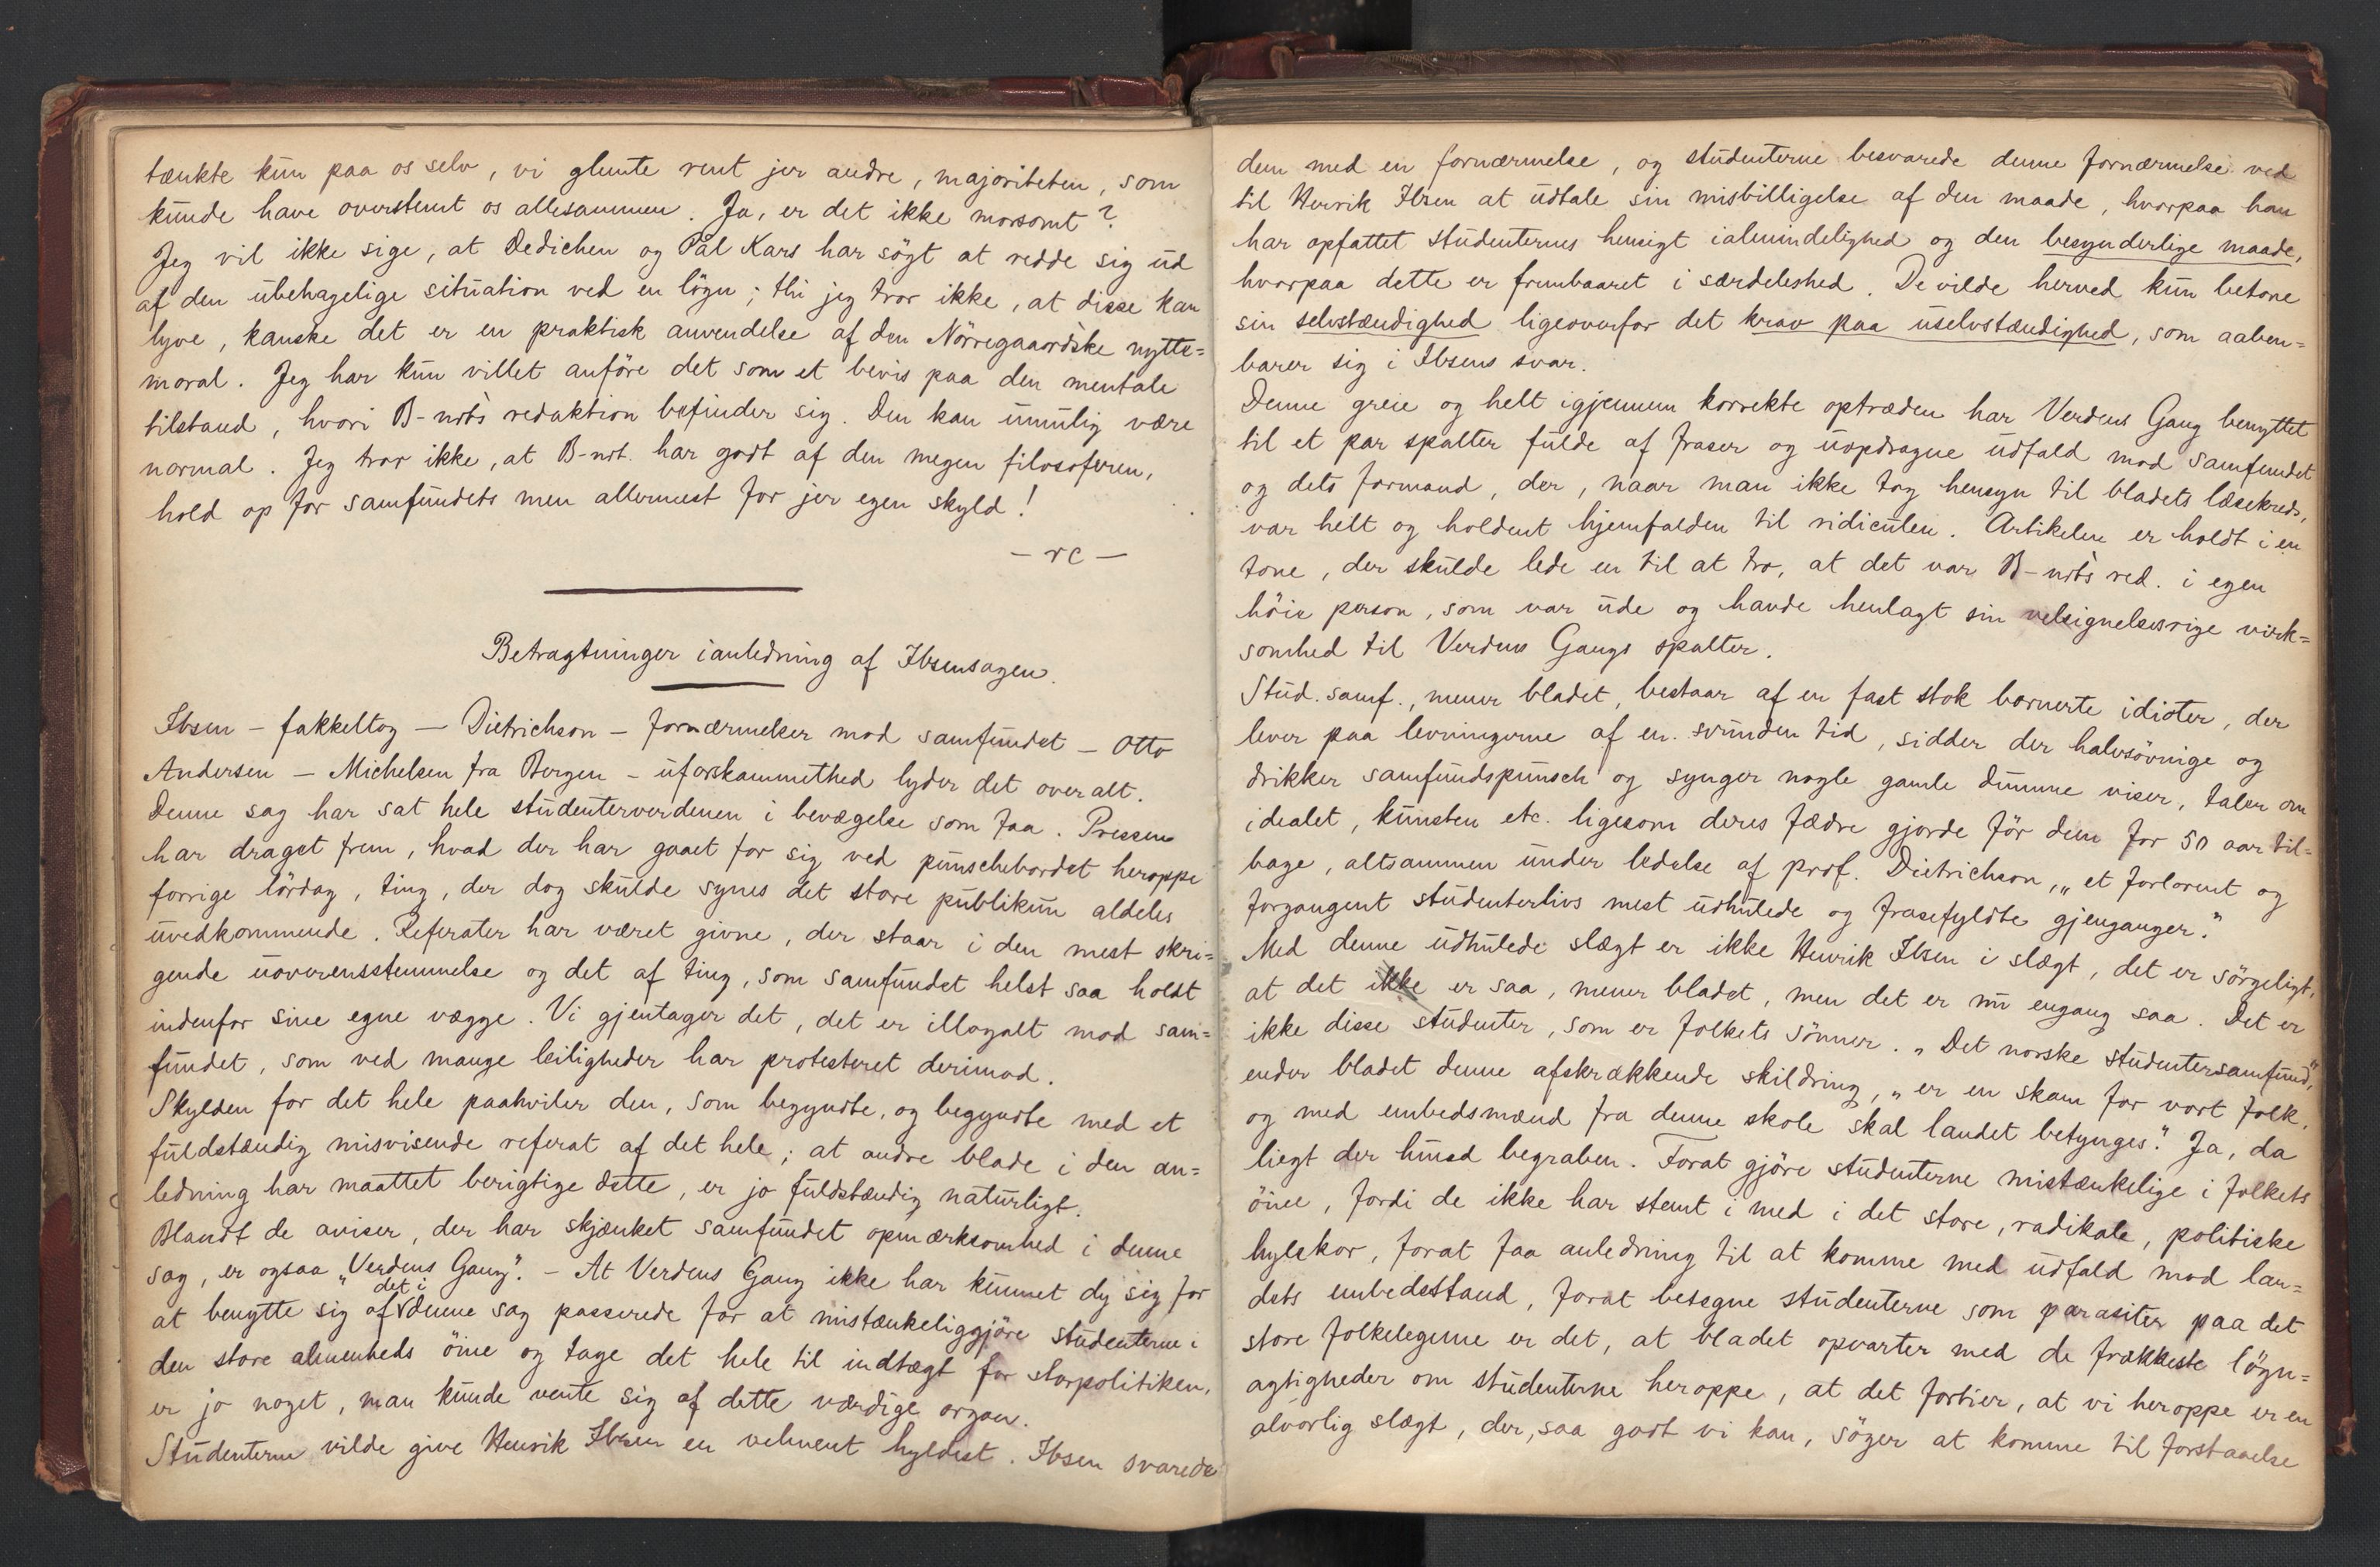 tænkte kun paa os selv, vi glemte rent jer andre, majoriteten, som
kunde have overstemt os allesammen. Ja, er det ikke morsomt?
Jeg vil ikke sige, at Dedichen og Pål Kars har søgt at redde sig ud
af den ubehagelige situation ved en løgn; thi jeg tror ikke, at disse kan
lyve, kanske det er en praktisk anvendelse af den Nørregaardske nytte=
moral. Jeg har kun villet anføre det som et bevis paa den mentale
tilstand, hvori B-nrt's redaktion befinder sig. Den kan umulig være
normal. Jeg tror ikke, at B-nrt. har godt af den megen filosoferen,
hold op for samfundets men allermest for jer egen skyld!
– rc –
Betragtninger ianledning af Ibsensagen.
Ibsen – fakkeltog – Dietrichson – fornærmelser mod samfundet – Otto
Andersen – Michelsen fra Bergen – uforskammethed lyder det overalt.
Denne sag har sat hele studenterverdenen i bevægelse som faa. Pressen
har draget frem, hvad der har gaaet for sig ved punschebordet heroppe
forrige lørdag, ting, der dog skulde synes det store publikum aldeles
uvedkommende. Referater har været givne, der staar i den mest skri=
gende uoverensstemmelse og det af ting, som samfundet helst saa holdt
indenfor sine egne vægge. Vi gjentager det, det er illoyalt mod sam=
fundet, som ved mange leiligheder har protesteret derimod.
Skylden for det hele paahviler den, som begyndte, og begyndte med et
fuldstændig misvisende referat af det hele; at andre blade i den an=
ledning har maattet berigtige dette, er jo fuldstændig naturligt.
Blandt de aviser, der har skjænket samfundet opmærksomhed i denne
sag, er ogsaa „Verdens Gang“. – At Verdens Gang ikke har kunnet dy sig for
at benytte sig af det i denne sag passerede for at mistænkeliggjøre studenterne i
den store almenheds øine og tage det hele til indtægt for storpolitiken,
er jo noget, man kunde vente sig af dette værdige organ.
Studenterne vilde give Henrik Ibsen en velment hyldest. Ibsen svarede
dem med en fornærmelse, og studenterne besvarede denne fornærmelse ved
til Henrik Ibsen at udtale sin misbilligelse af den maade, hvorpaa han
har opfattet studenternes hensigt ialmindelighed og den besynderlige maade,
hvorpaa dette er frembaaret i særdeleshed. De vilde herved kun betone
sin selvstændighed ligeoverfor det krav paa uselvstændighed, som aaben=
barer sig i Ibsens svar.
Denne greie og helt igjennem korrekte optræden har Verdens Gang benyttet
til et par spalter fulde af fraser og uopdragne udfald mod samfundet
og dets formand, der, naar man ikke tog hensyn til bladets læsekreds,
var helt og holdent hjemfalden til ridiculen. Artikelen er holdt i en
tone, der skulde lede en til at tro, at det var B-nrt's red. i egen
høie person, som var ude og havde henlagt sin velsignelsesrige virk=
somhed til Verdens Gangs spalter.
Stud. samf., mener bladet, bestaar af en fast stok bornerte idioter, der
lever paa levningerne af en svunden tid, sidder der halvsøvnige og
drikker samfundspunsch og synger nogle gamle dumme viser, taler om
idealet, kunsten etc. ligesom deres fædre gjorde før dem for 50 aar til=
bage, altsammen under ledelse af prof. Dietrichson, „et forlorent og
forgangent studenterlivs mest udhulede og frasefyldte gjenganger.“
Med denne udhulede slægt er ikke Henrik Ibsen i slægt, det er sørgeligt,
at det ikke er saa, mener bladet, men det er nu engang saa. Det er
ikke disse studenter, som er folkets sønner. „Det norske studentersamfund,“
ender bladet denne afskrækkende skildring, „er en skam for vort folk,
og med embedsmænd fra denne skole skal landet betynges.“ Ja, da
ligt der hund begraben. Forat gjøre studenterne mistænkelige i folkets
øine, fordi de ikke har stemt i med i det store, radikale, politiske
hylekor, forat faa anledning til at komme med udfald mod lan=
dets embedsstand, forat betegne studenterne som parasiter paa det
store folkelegeme er det, at bladet opvarter med de frækkeste løgn=
agtigheder om studenterne heroppe, at det fortier, at vi heroppe er en
alvorlig slægt, der, saa godt vi kan, søger at komme til forstaaelse